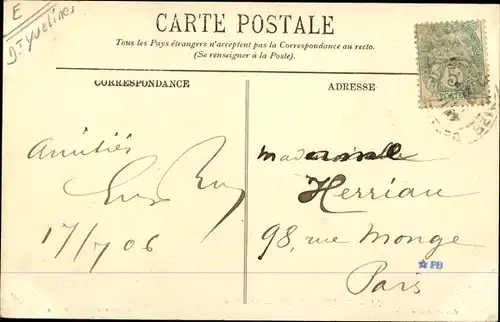 E
Dt Yvelines
CARTE POSTALE
Tous les Pays étrangers n'acceptent pas la Correspondance au recto.
(Se renseigner à la Poste).
CORRESPONDANCE
ADRESSE
Amitiés
17/7 06
Mademoiselle
Herriau
98, rue Monge
Paris
PB
5